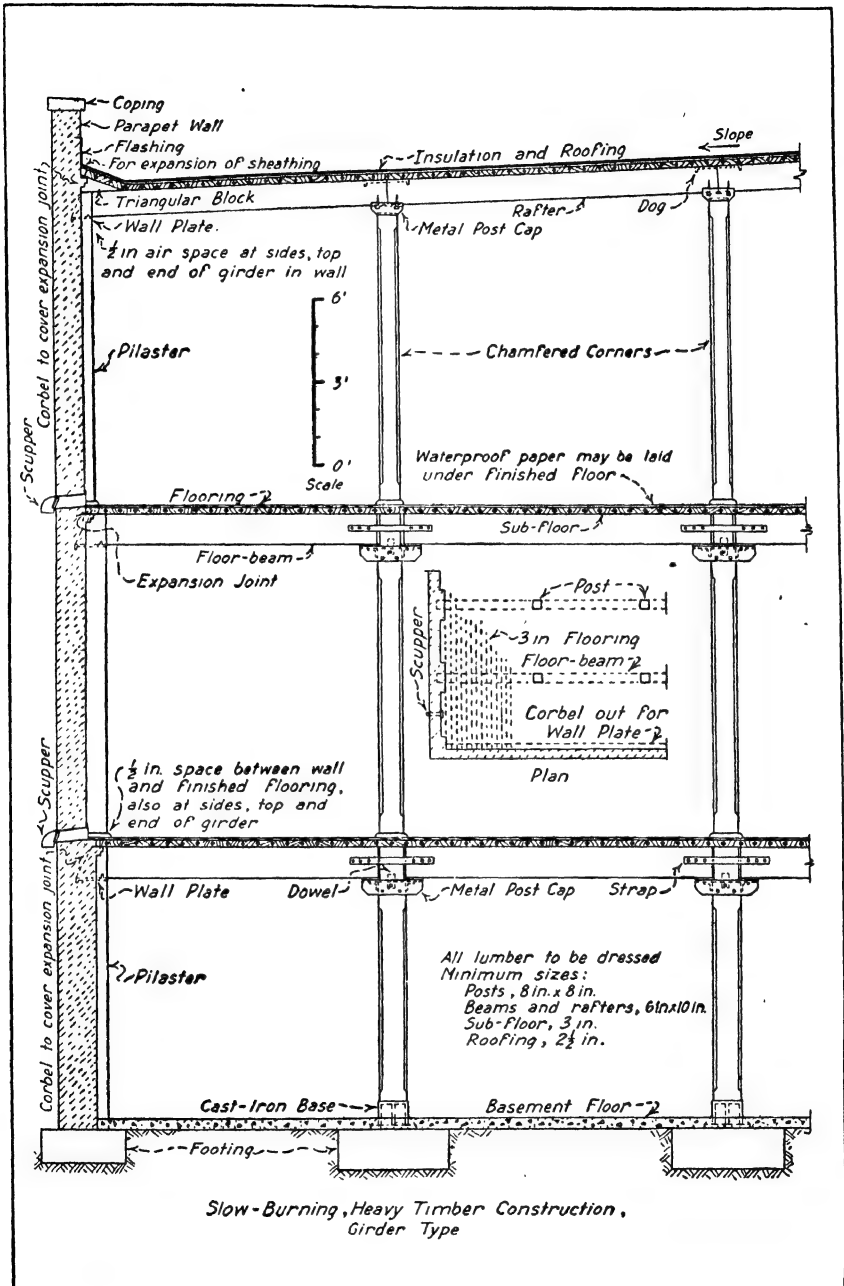 Coping
Parapet Wall
Flashing
For expansion of sheathing
Insulation and Roofing
Slope
Triangular Block
Rafter
Dog
Wall Plate.
Metal Post Cap
½ in air space at sides, top
and end of girder in wall
Corbel to cover expansion joint
6'
3'
0'
Scale
Pilaster
Chamfered Corners
Scupper
Waterproof paper may be laid
under finished floor
Flooring
Sub-floor
Floor-beam
Expansion Joint
Post
3 in Flooring
Floor-beam
Scupper
Corbel out for
Wall Plate
Plan
Scupper
½ in. space between wall
and finished flooring,
also at sides, top and
end of girder
Wall Plate
Dowel
Metal Post Cap
Strap
Corbel to cover expansion joint
Pilaster
All lumber to be dressed
Minimum sizes:
Posts, 8 in. x 8 in.
Beams and rafters, 6in x10 in.
Sub-floor, 3 in.
Roofing, 2½ in.
Cast-Iron Base
Basement Floor
Footing
Slow-Burning, Heavy Timber Construction,
Girder Type